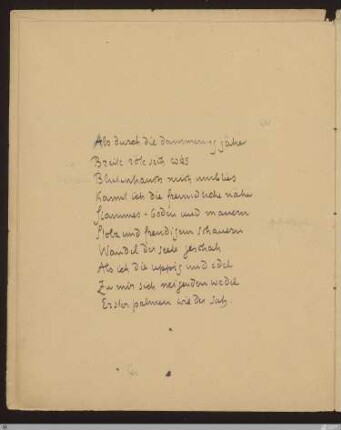 Als durch die dämmerung jähe
Breite röte sich wies
Blutenhauch mich umblies
Kannt ich die freundliche nähe
Stammes- boden und mauern
Stolz und freudigem schauern
Wandel der seele geschah
Als ich die üppig und edel
Zu mir sich neigenden wedel
Erster palmen wie der sah.